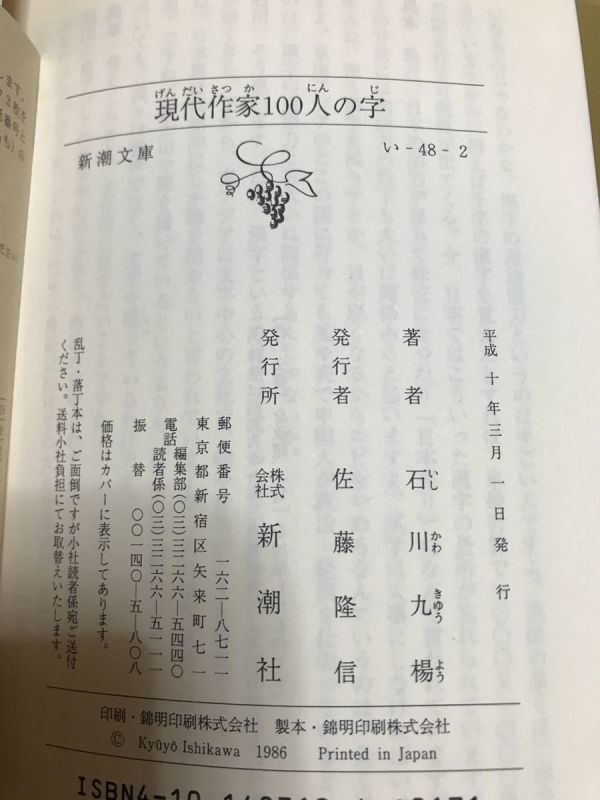 げんだいさっか にん じ
現代作家100人の字
新潮文庫
い-48-2
平成十年三月一日発行
著者 石川九楊
いし かわ きゅう よう
発行者 佐藤隆信
発行所 株式会社 新潮社
郵便番号 一六二―八七一一
東京都新宿区矢来町七一
電話 編集部(〇三)三二六六―五四四〇
読者係(〇三)三二六六―五一一一
振替 〇〇一四〇―五―八〇八
価格はカバーに表示してあります。
乱丁・落丁本は、ご面倒ですが小社読者係宛ご送付
ください。送料小社負担にてお取替えいたします。
印刷・錦明印刷株式会社 製本・錦明印刷株式会社
© Kyūyō Ishikawa 1986 Printed in Japan
ISBN4-10